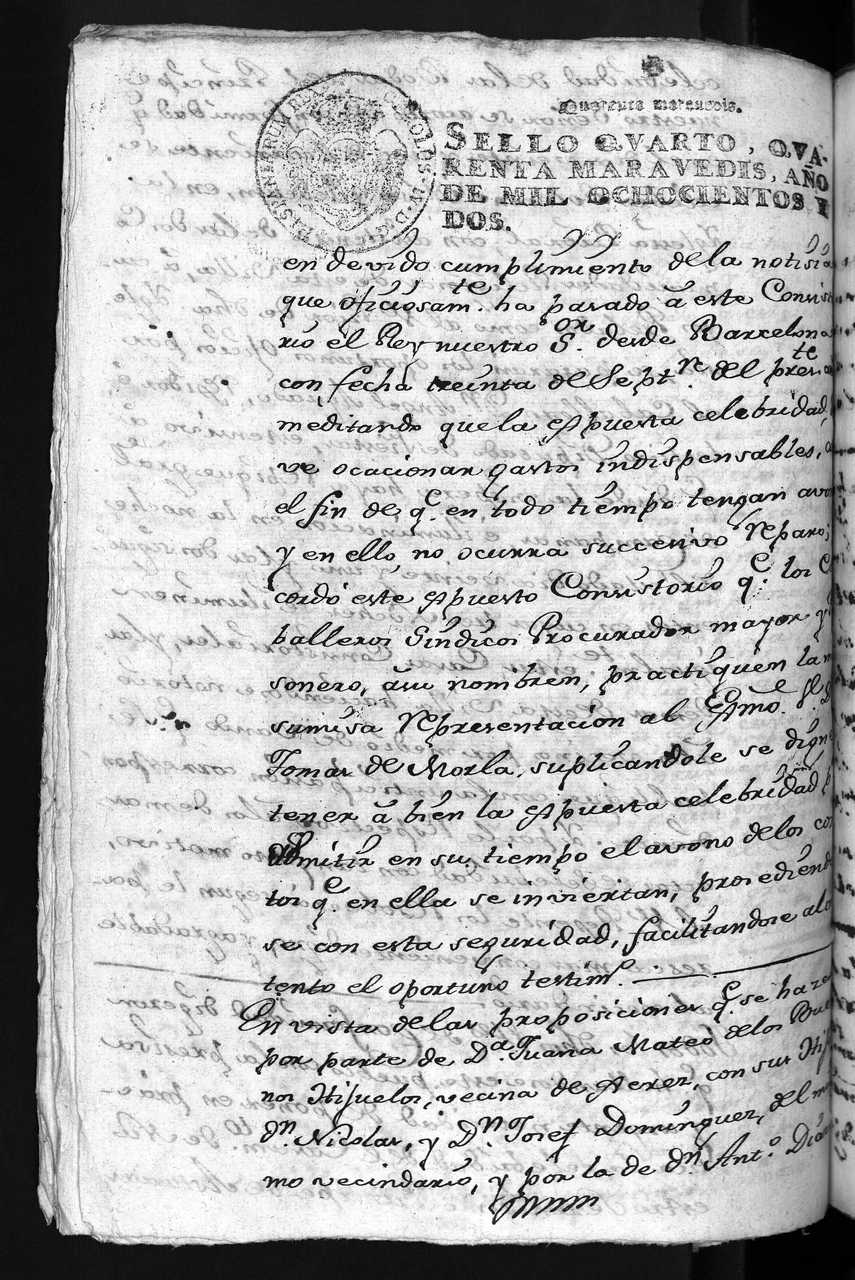 CAROLUS IV D G HISPANIARUM REX
Quarenta maravedis.
SELLO QVARTO, QVA-
RENTA MARAVEDIS, AÑO
DE MIL OCHOCIENTOS Y
DOS.
en devido cumplimiento de la notisia
que oficiosam.te ha pasado â este Consis
rio el Rey nuestro S.or desde Barcelona
con fecha treinta de Sept.re del pres.te
meditando que la expuesta celebridad,
ve ocacionar gastos indispensables,
el fin de q.e en todo tiempo tengan avo
y en ello no ocurra succesivo reparo;
cordó este expuesto Consistorio q.e los C
balleros Sindicos Procurador mayor y
sonero, que nombren, practiquen la m
sumisa representacion al Exmô. S.r D
Tomas de Morla, suplicandole se dign
tener â bien la expuesta celebridad
admitir en su tiempo el avono de los cos
tos q.e en ella se inviertan, prosediendo
se con esta seguridad, facilitandose al
tento el oportuno testim.o
En vista de las proposiciones q.e se hazen
por parte de D.a Juana Mateo de los Bue
nos Hijuelos, vecina de Xerez, con sus Hij
d.n Nicolas, y D.n Josef Dominguez, del mis
mo vecindario, y por la de d.n Ant.o Dia